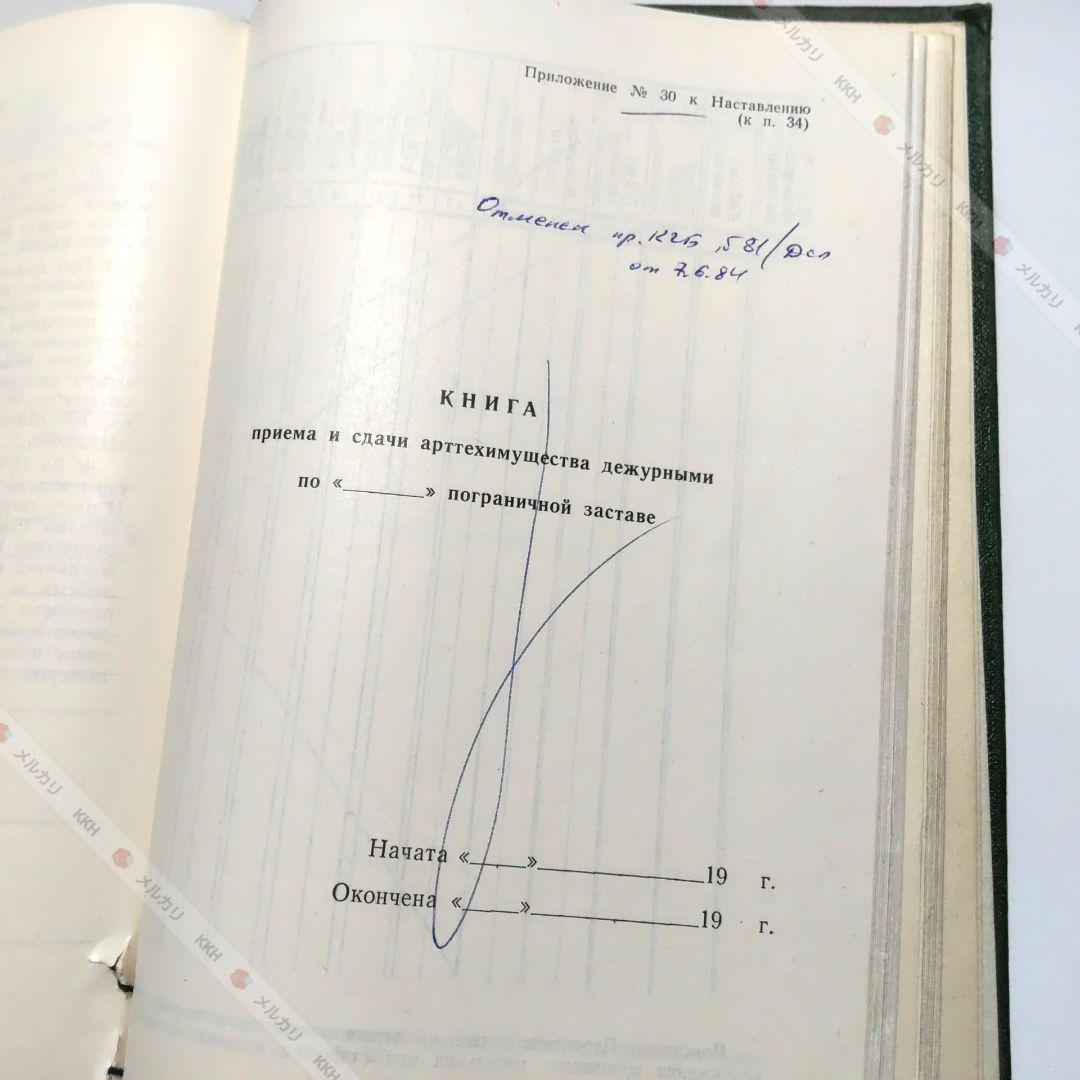 Приложение № 30 к Наставлению
(к п. 34)
Отменен пр. КГБ 581/Дсп
от 7.6.84
КНИГА
приема и сдачи арттехимущества дежурными
по «________» пограничной заставе
Начата «_____»_______________19 г.
Окончена «_____»_______________19 г.
メルカリ KKH メルカリ KKH メルカリ
メルカリ KKH メルカリ KKH メルカリ KKH